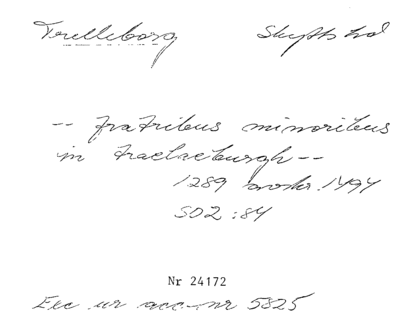 Trelleborg Skyttshd
-- fratribus minoribus
in traelaeburgh --
1289 avskr. 1494
SD2 : 84
Nr 24172
Exc ur acc-nr 5825